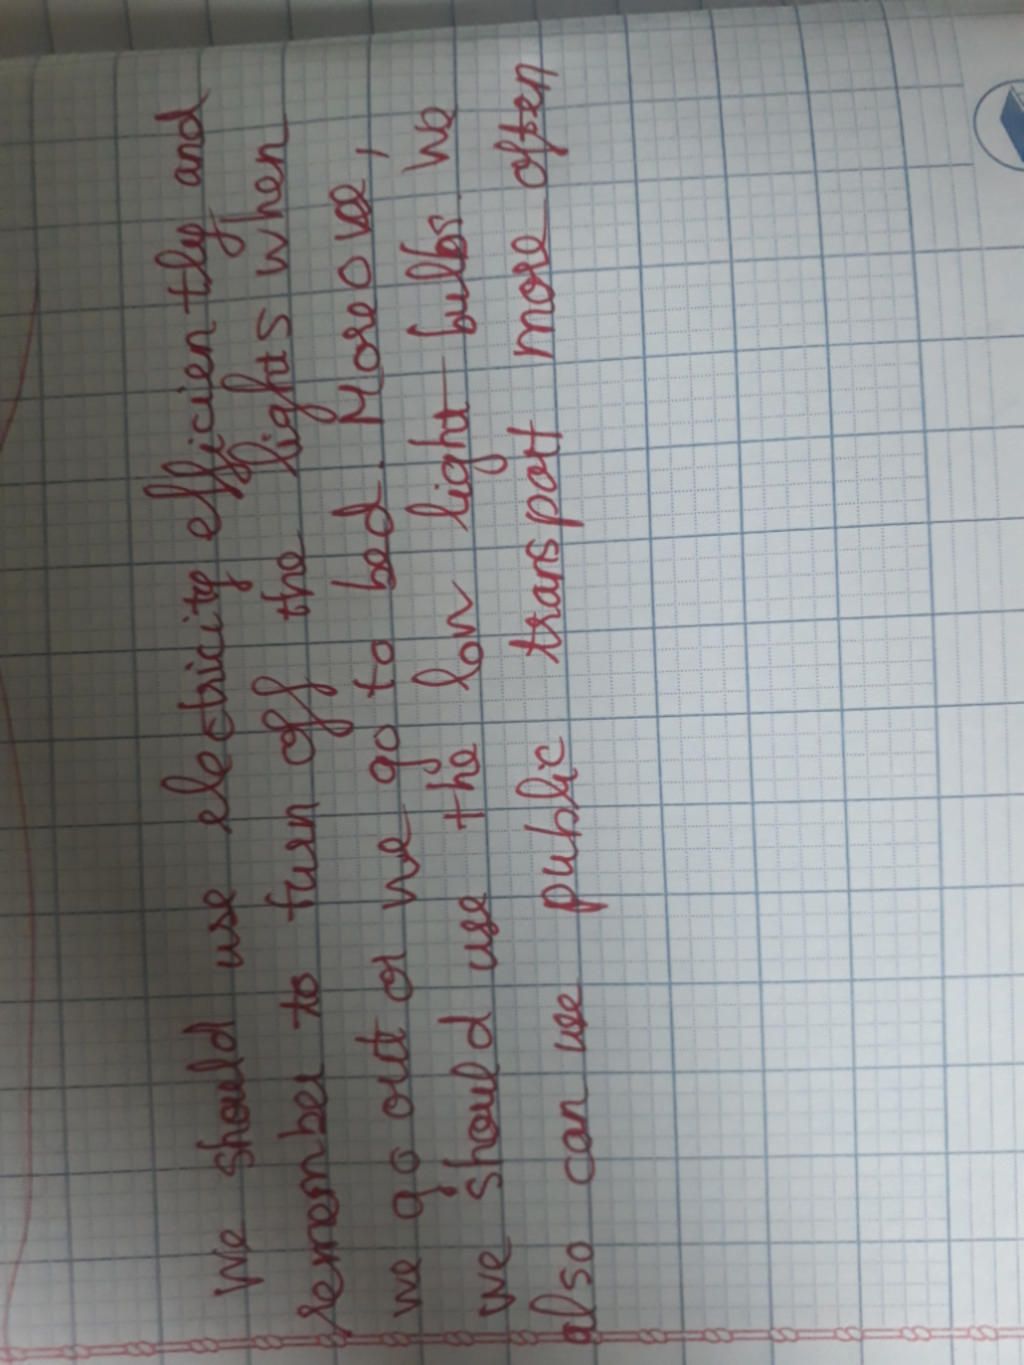 we should use electricity efficiently and
remember to turn off the lights when
we go out or we go to bed. Moreove,
we should use the low light bulbs. we
also can use public transport more often